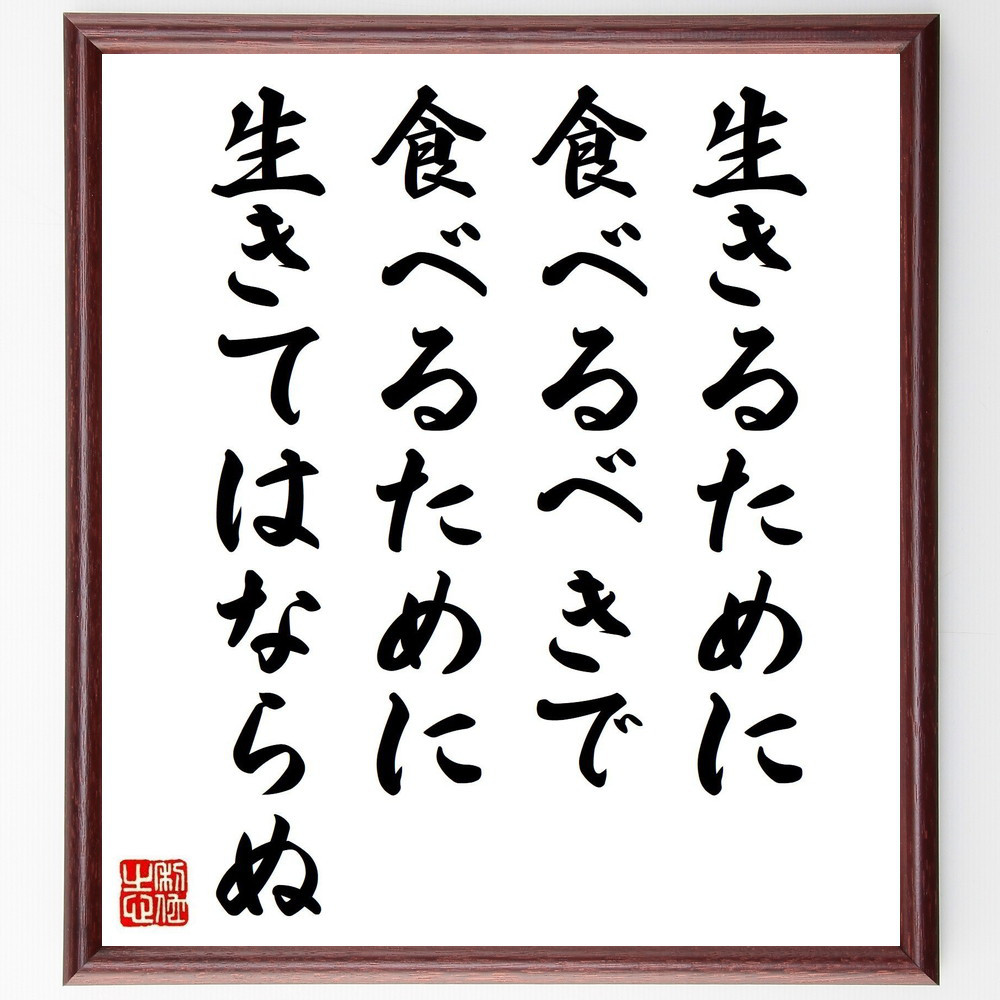 生きるために
食べるべきで
食べるために
生きてはならぬ